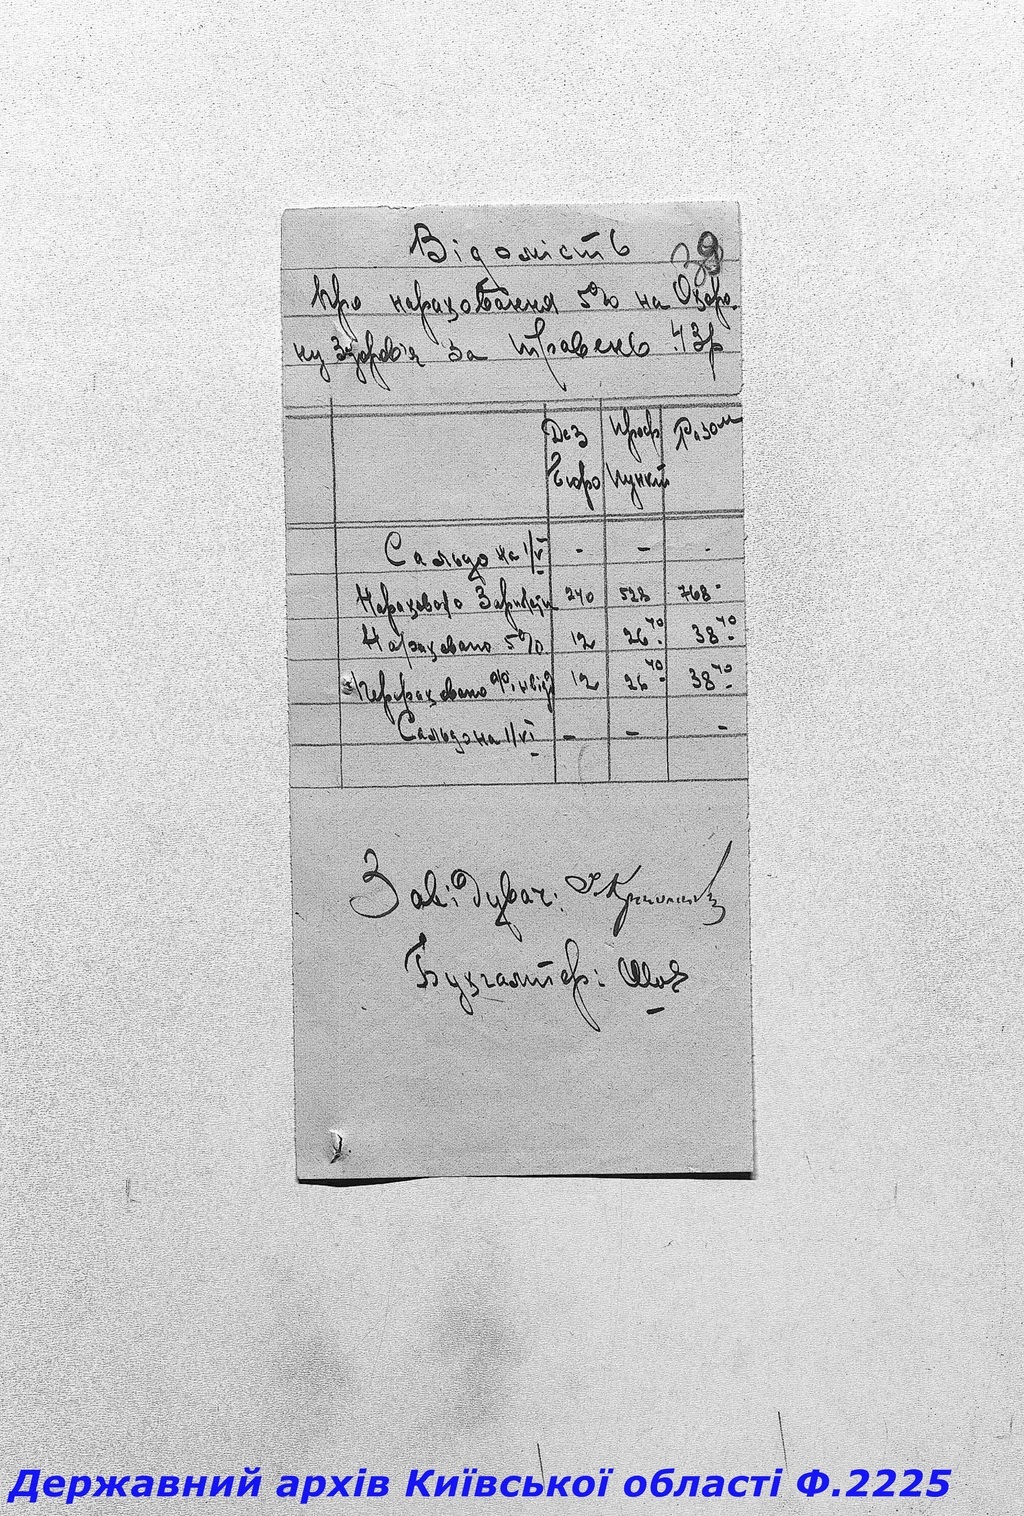 Відомість
39
Про нараховання 5% на Охоро-
ну Здоров'я за Травень 43р
Дез Бюро Проф Пункт Разом
Сальдо на 1/V - - -
Нараховано Зарплати 240 528 768-
Нараховано 5% 12 26 40 38 40
Перераховано 12 26 40 38 40
Сальдо на 1/VI - - -
Завідувач:
Бухгалтер:
Державний архів Київської області Ф.2225